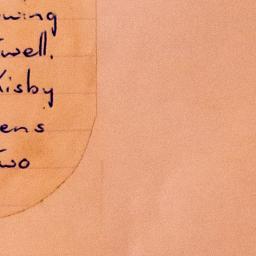 wing
well.
isby
ens
two